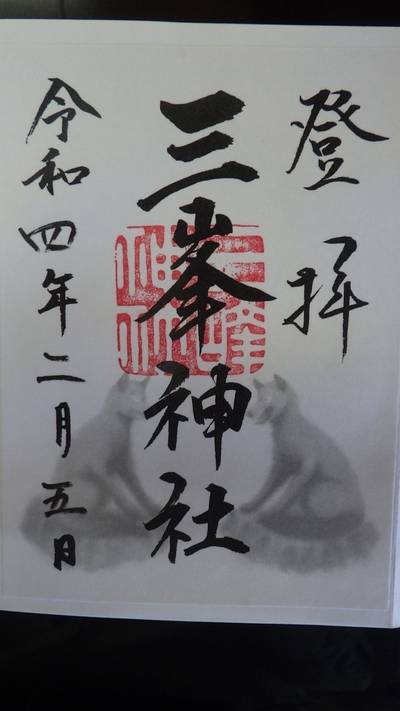 登拝
三峯神社
令和四年二月五日